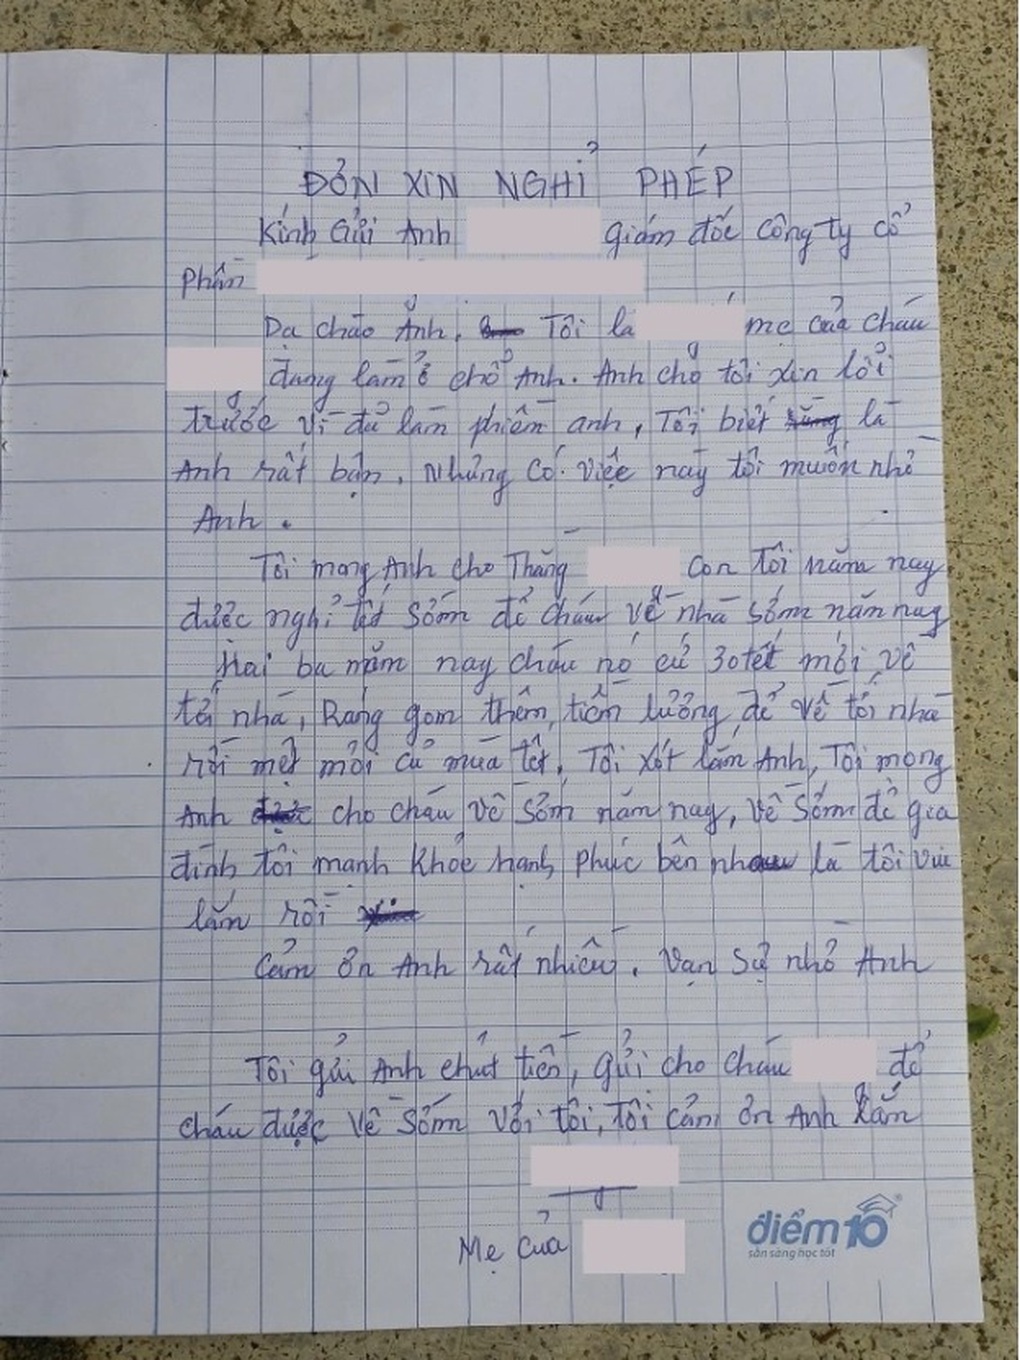 ĐỞN XIN NGHỈ PHÉP
Kính Gửi Anh giám đốc Công ty cổ
phần
Dạ chào Anh, Tôi là mẹ của cháu
đang làm ở chổ Anh. Anh cho tôi xin lổi
trước vì đả làm phiền anh, Tôi biết là
Anh rất bận. Nhưng có việc này tôi muốn nhờ
Anh.
Tôi mong Anh cho Thằng con tôi năm nay
được nghỉ tết sớm để cháu về nhà sớm năm nay
Hai ba năm nay cháu nó cứ 30 tết mới về
tới nhà, Ráng gom thêm tiền lương để về tới nhà
rồi mệt mỏi cả mùa tết. Tôi xót lắm Anh, Tôi mong
Anh cho cháu về sớm năm nay, về sớm để gia
đình tôi mạnh khỏe hạnh phúc bên nhau là tôi vui
lắm rồi
Cảm ơn Anh rất nhiều. Vạn sự nhờ Anh
Tôi gửi Anh chút tiền, gửi cho cháu để
cháu được về sớm với tôi, tôi cảm ơn Anh lắm
Mẹ của
điểm 10
sẵn sàng học tốt